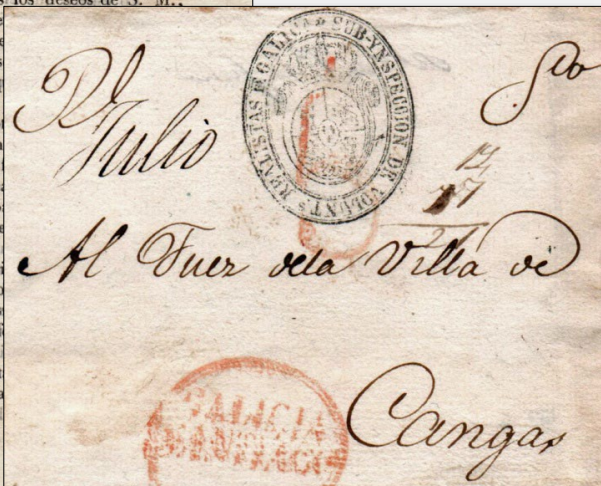 los deseos de S. M.,
SUB-YNSPECCION DE VOLUNT.S REALISTAS DE GALICIA
R.l
Julio
17
17
Al Juez dela Villa de
GALICIA
SANTIAGO
Cangas